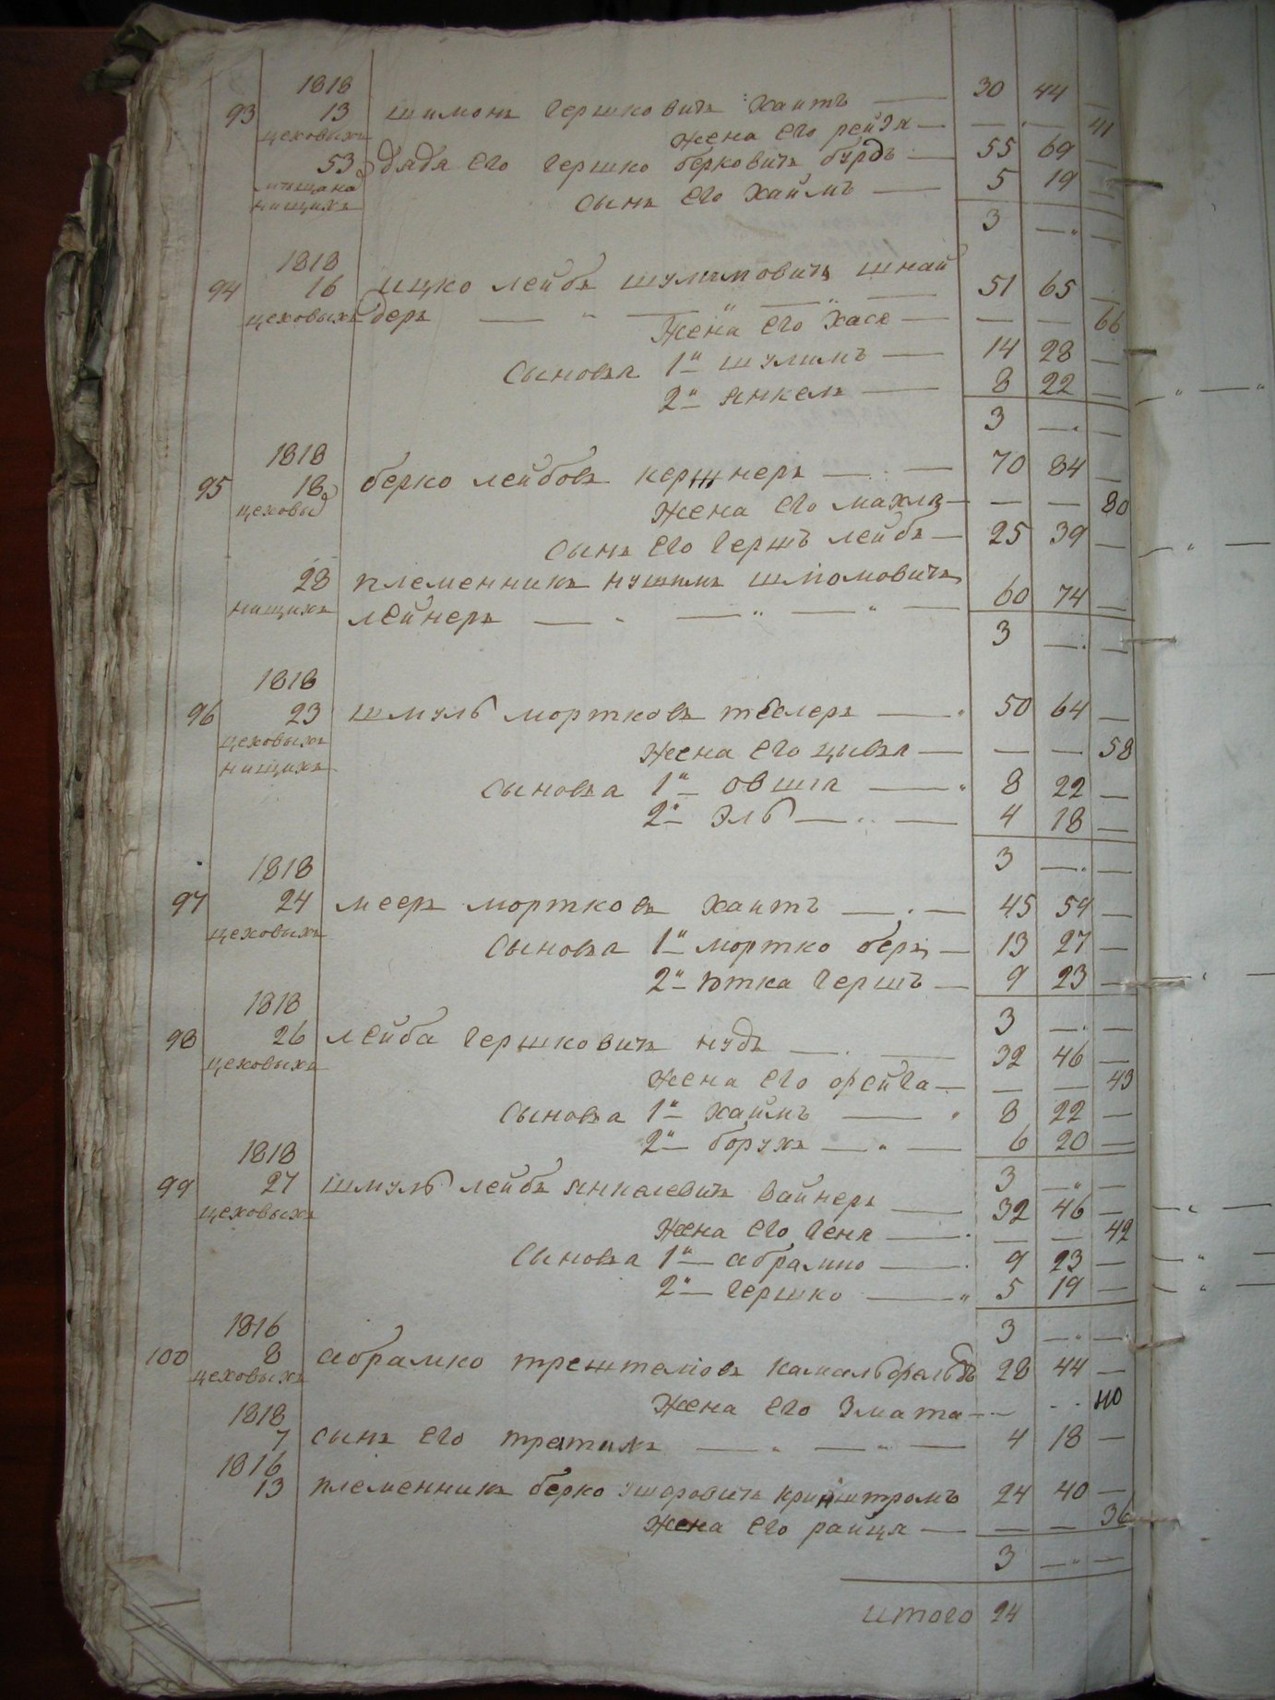 1818
93 13 шимонъ гершковичъ хаитъ — 30 44 —
цеховыхъ жена его рейзя — — — 41
53 дядя его гершко берковичъ бурдъ — 55 69 —
мещанъ
нищихъ сынъ его хаимъ — 5 19 —
3 — —
1818
94 16 ицко лейбъ шулимовичъ шнай 51 65 —
цеховыхъ деръ
жена его хася — — — 66
сыновья 1й шулимъ — 14 28 —
2й янкель — 8 22 —
3 — —
1818
95 18 берко лейбовъ кершнеръ — 70 84 —
цеховы жена его махля — — — 80
сынъ его гершъ лейбъ — 25 39 —
28 племенникъ нушимъ шліомовичъ
нищихъ лейнеръ — 60 74 —
3 — —
1818
96 23 шмуль мортковъ теслеръ — 50 64 —
цеховыхъ
нищихъ жена его цывья — — — 58
сыновья 1й овшія — 8 22 —
2й эль — 4 18 —
3 — —
1818
97 24 мееръ мортковъ хаитъ — 45 59 —
цеховыхъ
сыновья 1й мортко беръ — 13 27 —
2й гершъ — 9 23 —
1818 3 — —
98 26 лейба гершковичъ нудъ — 32 46 —
цеховыхъ
жена его фейга — — — 43
сыновья 1й хаимъ — 8 22 —
2й борухъ — 6 20 —
1818 3 — —
99 27 шмуль лейбъ янкелевичъ вайнеръ — 32 46 —
цеховыхъ жена его геня — — — 42
сыновья 1й абрамко — 9 23 —
2й гершко — 5 19 —
1816 3 — —
100 8 абрамко 28 44 —
цеховыхъ
жена его злата — — — 40
1818
7 сынъ его — 4 18 —
1816
13 племенникъ берко 24 40 —
жена его райця — — — 36
3 — —
итого 24